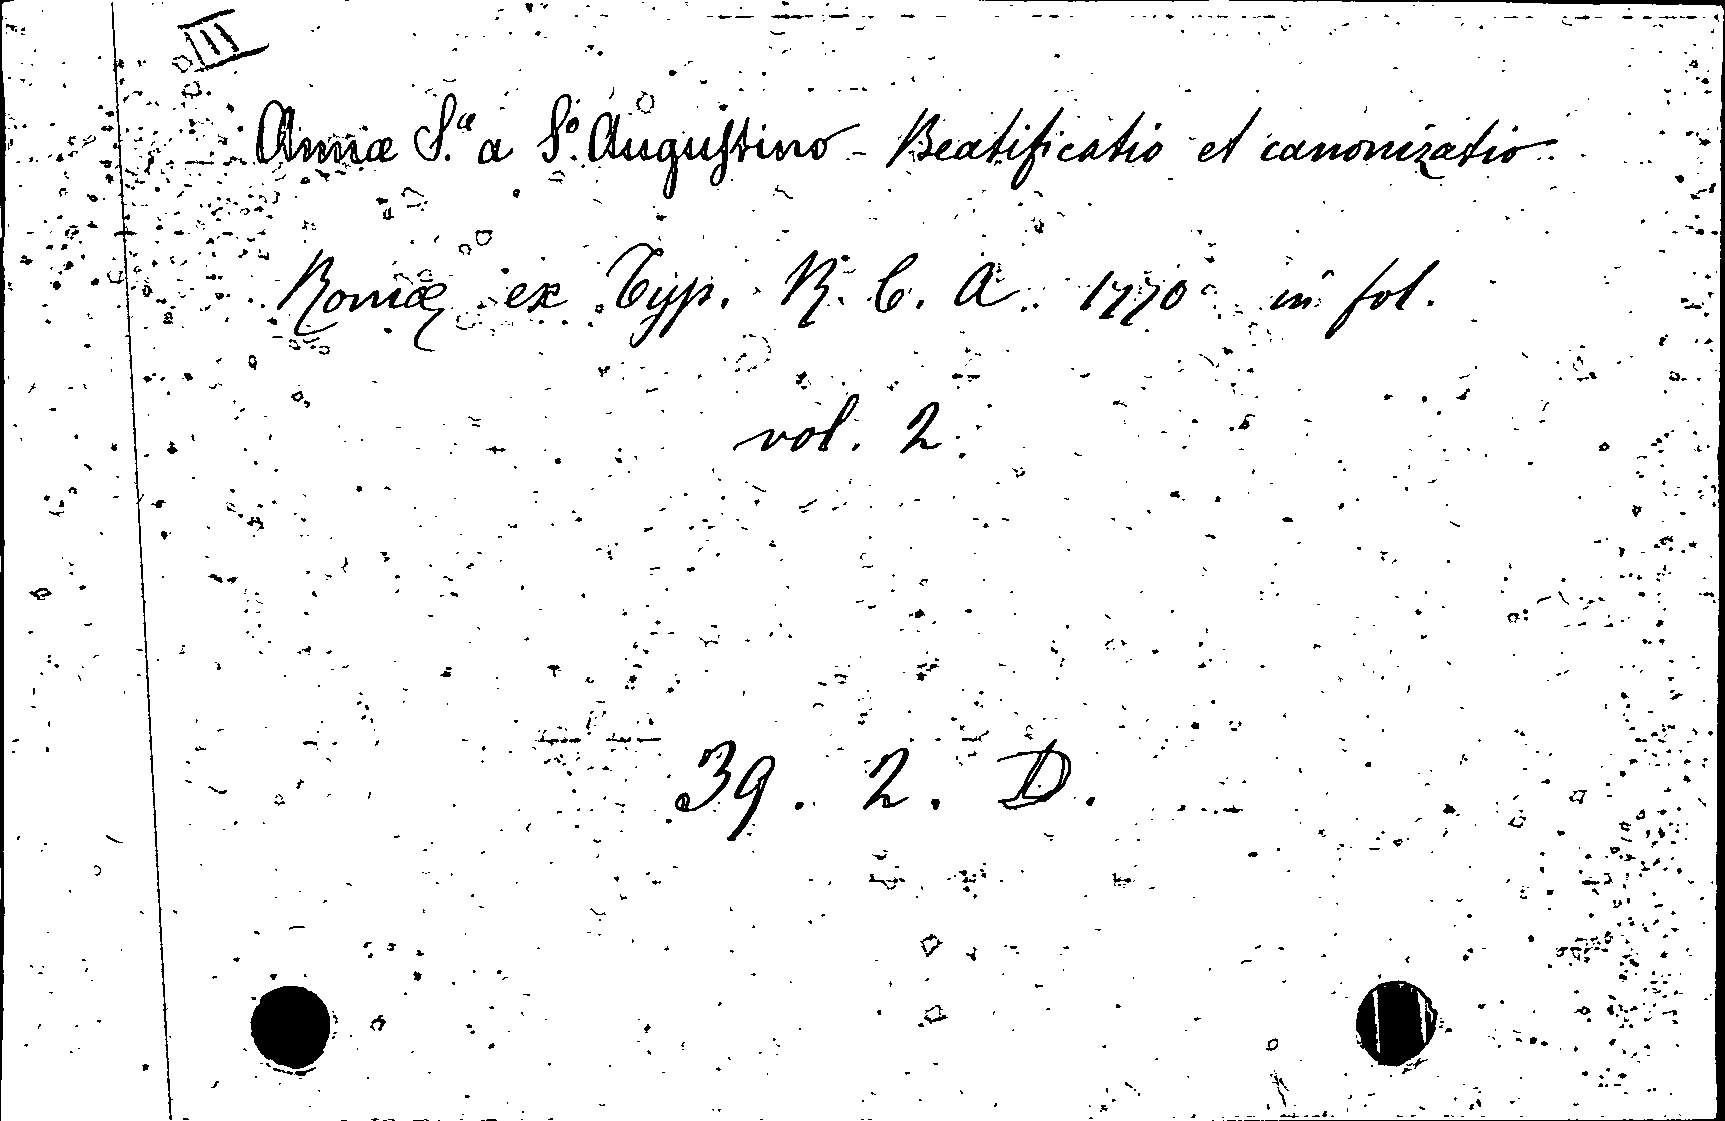 III
Annæ S.ª a S.º Augustino - Beatificatio et canonizatio
Romæ, ex Typ. R. C. A. 1770 in fol.
vol. 2.
39. 2. D.